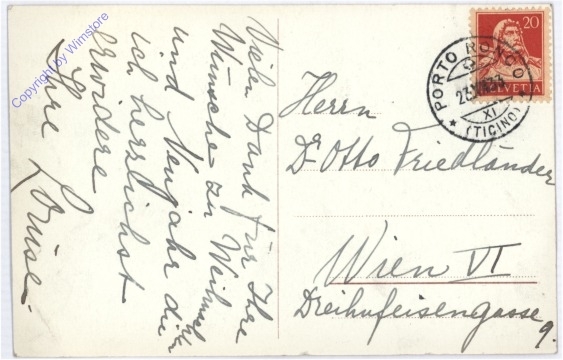 Vielen Dank für Ihre
Wünsche zu Weihnach
ten
und Neujahr die
ich herzlichst
erwidere
Ihre Louise
20
HELVETIA
PORTO RONCO
XI
(TICINO)
Herrn
Dr Otto Friedländer
Wien VI
Dreihufeisengasse
9.
Copyright by Wimstore